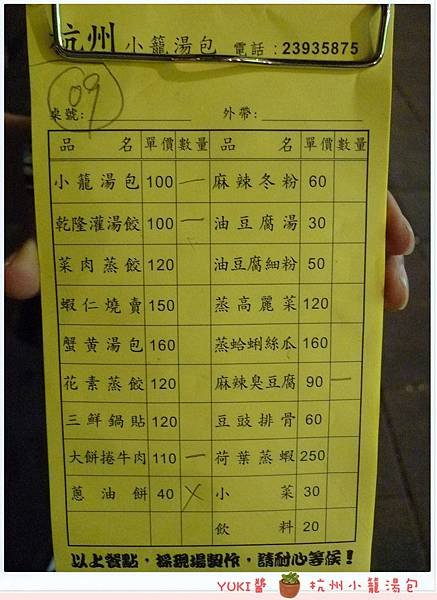 杭州小籠湯包 電話:23935875
09
桌號: 外帶:
品名 單價 數量 品名 單價 數量
小籠湯包 100 一 麻辣冬粉 60
乾隆灌湯餃 100 一 油豆腐湯 30
菜肉蒸餃 120 油豆腐細粉 50
蝦仁燒賣 150 蒸高麗菜 120
蟹黃湯包 160 蒸蛤蜊絲瓜 160
花素蒸餃 120 麻辣臭豆腐 90 一
三鮮鍋貼 120 豆豉排骨 60
大餅捲牛肉 110 一 荷葉蒸蝦 250
蔥油餅 40 X 小菜 30
飲料 20
以上餐點,採現場製作,請耐心等候!
YUKI醬 杭州小籠湯包